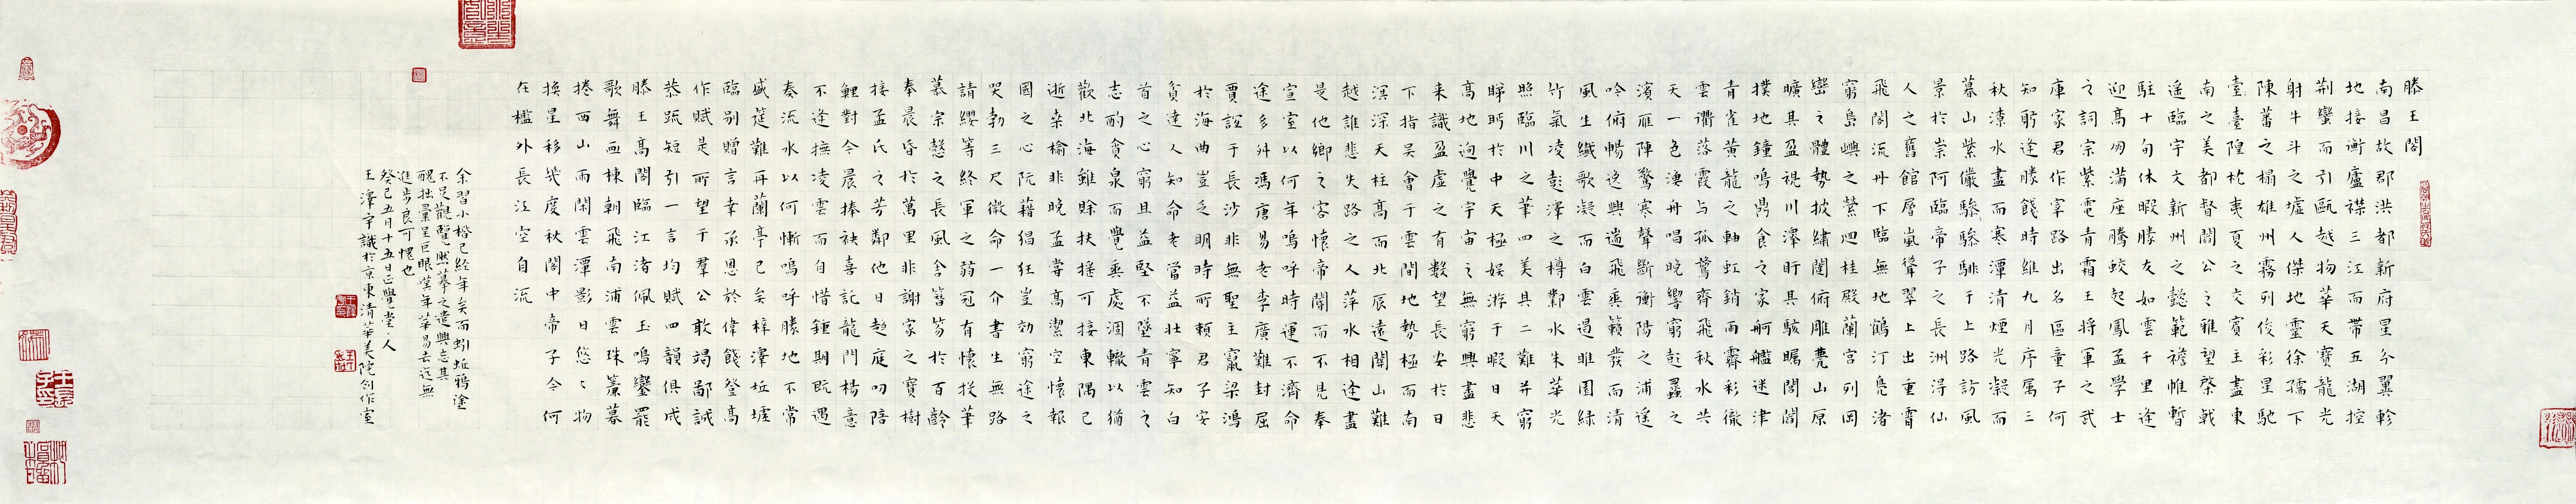 滕王閣
南昌故郡洪都新府星分翼軫
地接衡廬襟三江而帶五湖控
荊蠻而引甌越物華天寶龍光
射牛斗之墟人傑地靈徐孺下
陳蕃之榻雄州霧列俊彩星馳
臺臺隍枕夷夏之交賓主盡東
南之美都督閻公之雅望棨戟
遙臨宇文新州之懿範襜帷暫
駐十旬休暇勝友如雲千里逢
迎高朋滿座騰蛟起鳳孟學士
之詞宗紫電青霜王將軍之武
庫家君作宰路出名區童子何
知躬逢勝餞時維九月序属三
秋潦水盡而寒潭清煙光凝而
暮山紫儼驂驂騑于上路訪風
景於崇阿臨帝子之長洲得仙
人之舊館層嵐聳翠上出重霄
飛閣流丹下臨無地鶴汀鳧渚
窮島嶼之縈迴桂殿蘭宮列岡
巒之體勢披繡闥俯雕甍山原
曠其盈視川澤盱其駭矚閭閻
撲地鐘鳴鼎食之家舸艦迷津
青雀黃龍之軸虹銷雨霽彩徹
雲衢落霞与孤鶩齊飛秋水共
天一色漁舟唱晚響窮彭蠡之
濱雁陣驚寒聲斷衡陽之浦遙
吟俯暢逸興遄飛爽籟發而清
風生纖歌凝而白雲遏睢園綠
竹氣凌彭澤之樽鄴水朱華光
照臨川之筆四美具二難并窮
睇眄於中天極娛游于暇日天
高地迥覺宇宙之無窮興盡悲
来識盈虛之有數望長安於日
下指吳會于雲間地勢極而南
溟深天柱高而北辰遠關山難
越誰悲失路之人萍水相逢盡
是他鄉之客懷帝閽而不見奉
宣室以何年嗚呼時運不濟命
途多舛馮唐易老李廣難封屈
賈誼于長沙非無聖主竄梁鴻
於海曲豈乏明時所賴君子安
貧達人知命老當益壯寧知白
首之心窮且益堅不墜青雲之
志酌貪泉而覺爽處涸轍以猶
歡北海雖賒扶搖可接東隅已
逝桑榆非晚孟嘗高潔空懷報
國之心阮藉猖狂豈効窮途之
哭勃三尺微命一介書生無路
請纓等終軍之弱冠有懷投筆
慕宗愨之長風舍簪笏於百齡
奉晨昏於萬里非謝家之寶樹
接孟氏之芳鄰他日趨庭叨陪
鯉對今晨捧袂喜託龍門楊意
不逢撫凌雲而自惜鍾期既遇
奏流水以何慚嗚呼勝地不常
盛筵難再蘭亭已矣梓澤坵墟
臨別贈言幸承恩於偉餞登高
作賦是所望于羣公敢竭鄙誠
恭疏短引一言均賦四韻俱成
滕王高閣臨江渚佩玉鳴鑾罷
歌舞画棟朝飛南浦雲珠簾暮
捲西山雨閑雲潭影日悠〻物
換星移幾度秋閣中帝子今何
在檻外長江空自流
余習小楷已經年矣而蚓蚯鴉塗
不足觀覽然摹之遣興忘其
醜拙量呈巨眼嘆年華易去迄無
進步良可愧也
癸巳五月十五日正覺堂人
王澤宇識於京東清華美院創作室